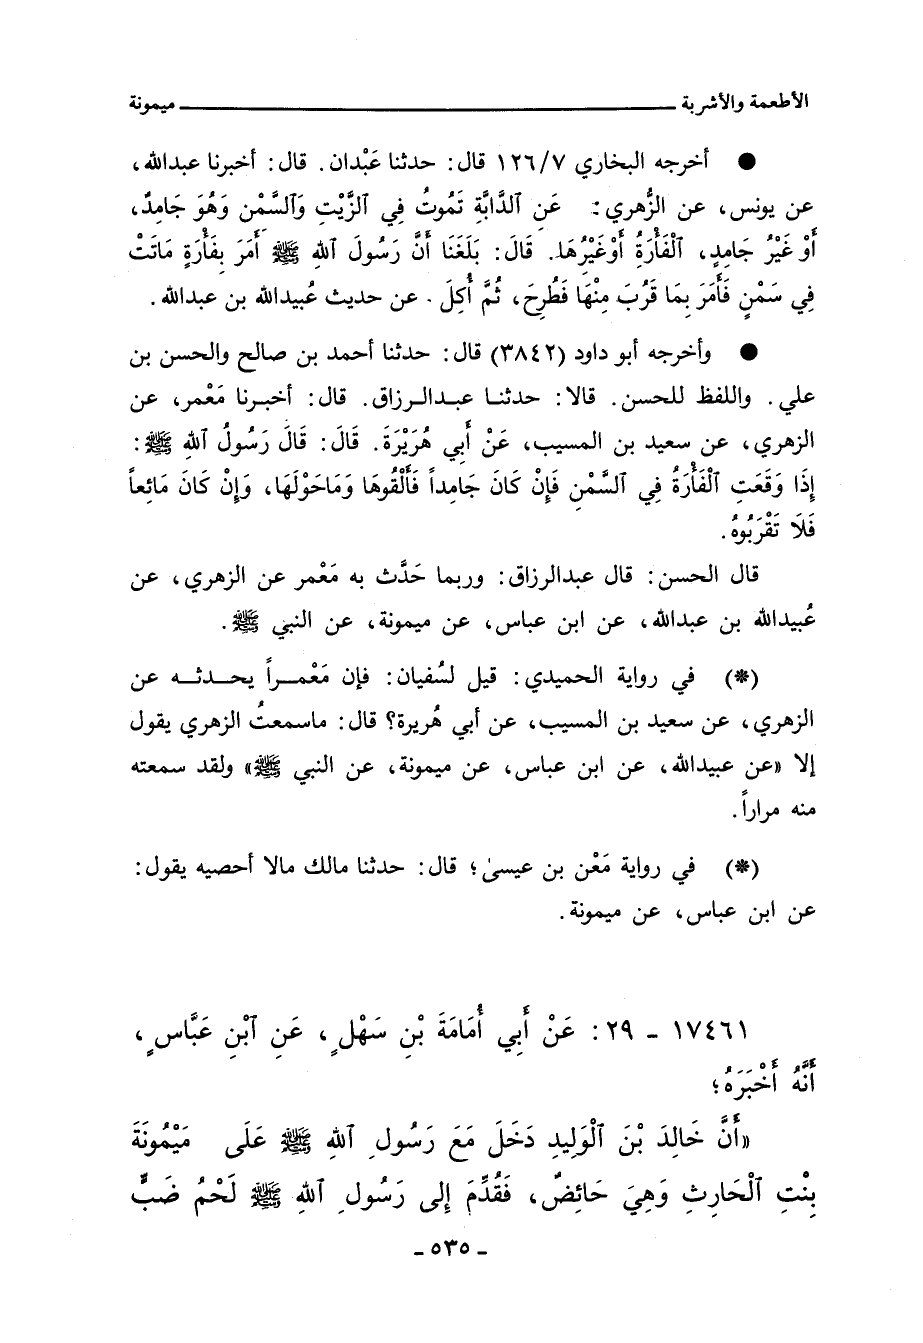 الأطعمة والأشربة ـــــــــــــــــــــ ميمونة
● أخرجه البخاري ١٢٦/٧ قال: حدثنا عَبْدان. قال: أخبرنا عبدالله،
عن يونس، عن الزُّهري: عَنِ ٱلدَّابَّةِ تَمُوتُ فِي ٱلزَّيْتِ وَٱلسَّمْنِ وَهُوَ جَامِدٌ،
أَوْ غَيْرُ جَامِدٍ، ٱلْفَأْرَةُ أَوْغَيْرُهَا. قَالَ: بَلَغَنَا أَنَّ رَسُولَ ٱللهِ ﷺ أَمَرَ بِفَأْرَةٍ مَاتَتْ
فِي سَمْنٍ فَأَمَرَ بِمَا قَرُبَ مِنْهَا فَطُرِحَ، ثُمَّ أُكِلَ. عن حديث عُبيدالله بن عبدالله.
● وأخرجه أبو داود (٣٨٤٢) قال: حدثنا أحمد بن صالح والحسن بن
علي. واللفظ للحسن. قالا: حدثنا عبدالرزاق. قال: أخبرنا مَعْمر، عن
الزهري، عن سعيد بن المسيب، عَنْ أَبِي هُرَيْرَةَ. قَالَ: قَالَ رَسُولُ ٱللهِ ﷺ:
إِذَا وَقَعَتِ ٱلْفَأْرَةُ فِي ٱلسَّمْنِ فَإِنْ كَانَ جَامِداً فَأَلْقُوهَا وَمَاحَوْلَهَا، وَإِنْ كَانَ مَائِعاً
فَلَا تَقْرَبُوهُ.
قال الحسن: قال عبدالرزاق: وربما حَدَّث به مَعْمر عن الزهري، عن
عُبيدالله بن عبدالله، عن ابن عباس، عن ميمونة، عن النبي ﷺ.
(*) في رواية الحميدي: قيل لسُفيان: فإن مَعْمراً يحدثه عن
الزهري، عن سعيد بن المسيب، عن أبي هُريرة؟ قال: ماسمعتُ الزهري يقول
إلا «عن عبيدالله، عن ابن عباس، عن ميمونة، عن النبي ﷺ» ولقد سمعته
منه مراراً.
(*) في رواية مَعْن بن عيسىٰ؛ قال: حدثنا مالك مالا أحصيه يقول:
عن ابن عباس، عن ميمونة.
١٧٤٦١ - ٢٩: عَنْ أَبِي أُمَامَةَ بْنِ سَهْلٍ، عَنِ ٱبْنِ عَبَّاسٍ،
أَنَّهُ أَخْبَرَهُ؛
«أَنَّ خَالِدَ بْنَ ٱلْوَلِيدِ دَخَلَ مَعَ رَسُولِ ٱللهِ ﷺ عَلَى مَيْمُونَةَ
بِنْتِ ٱلْحَارِثِ وَهِيَ حَائِضٌ، فَقُدِّمَ إِلى رَسُولِ ٱللهِ ﷺ لَحْمُ ضَبٍّ
- ٥٣٥ -